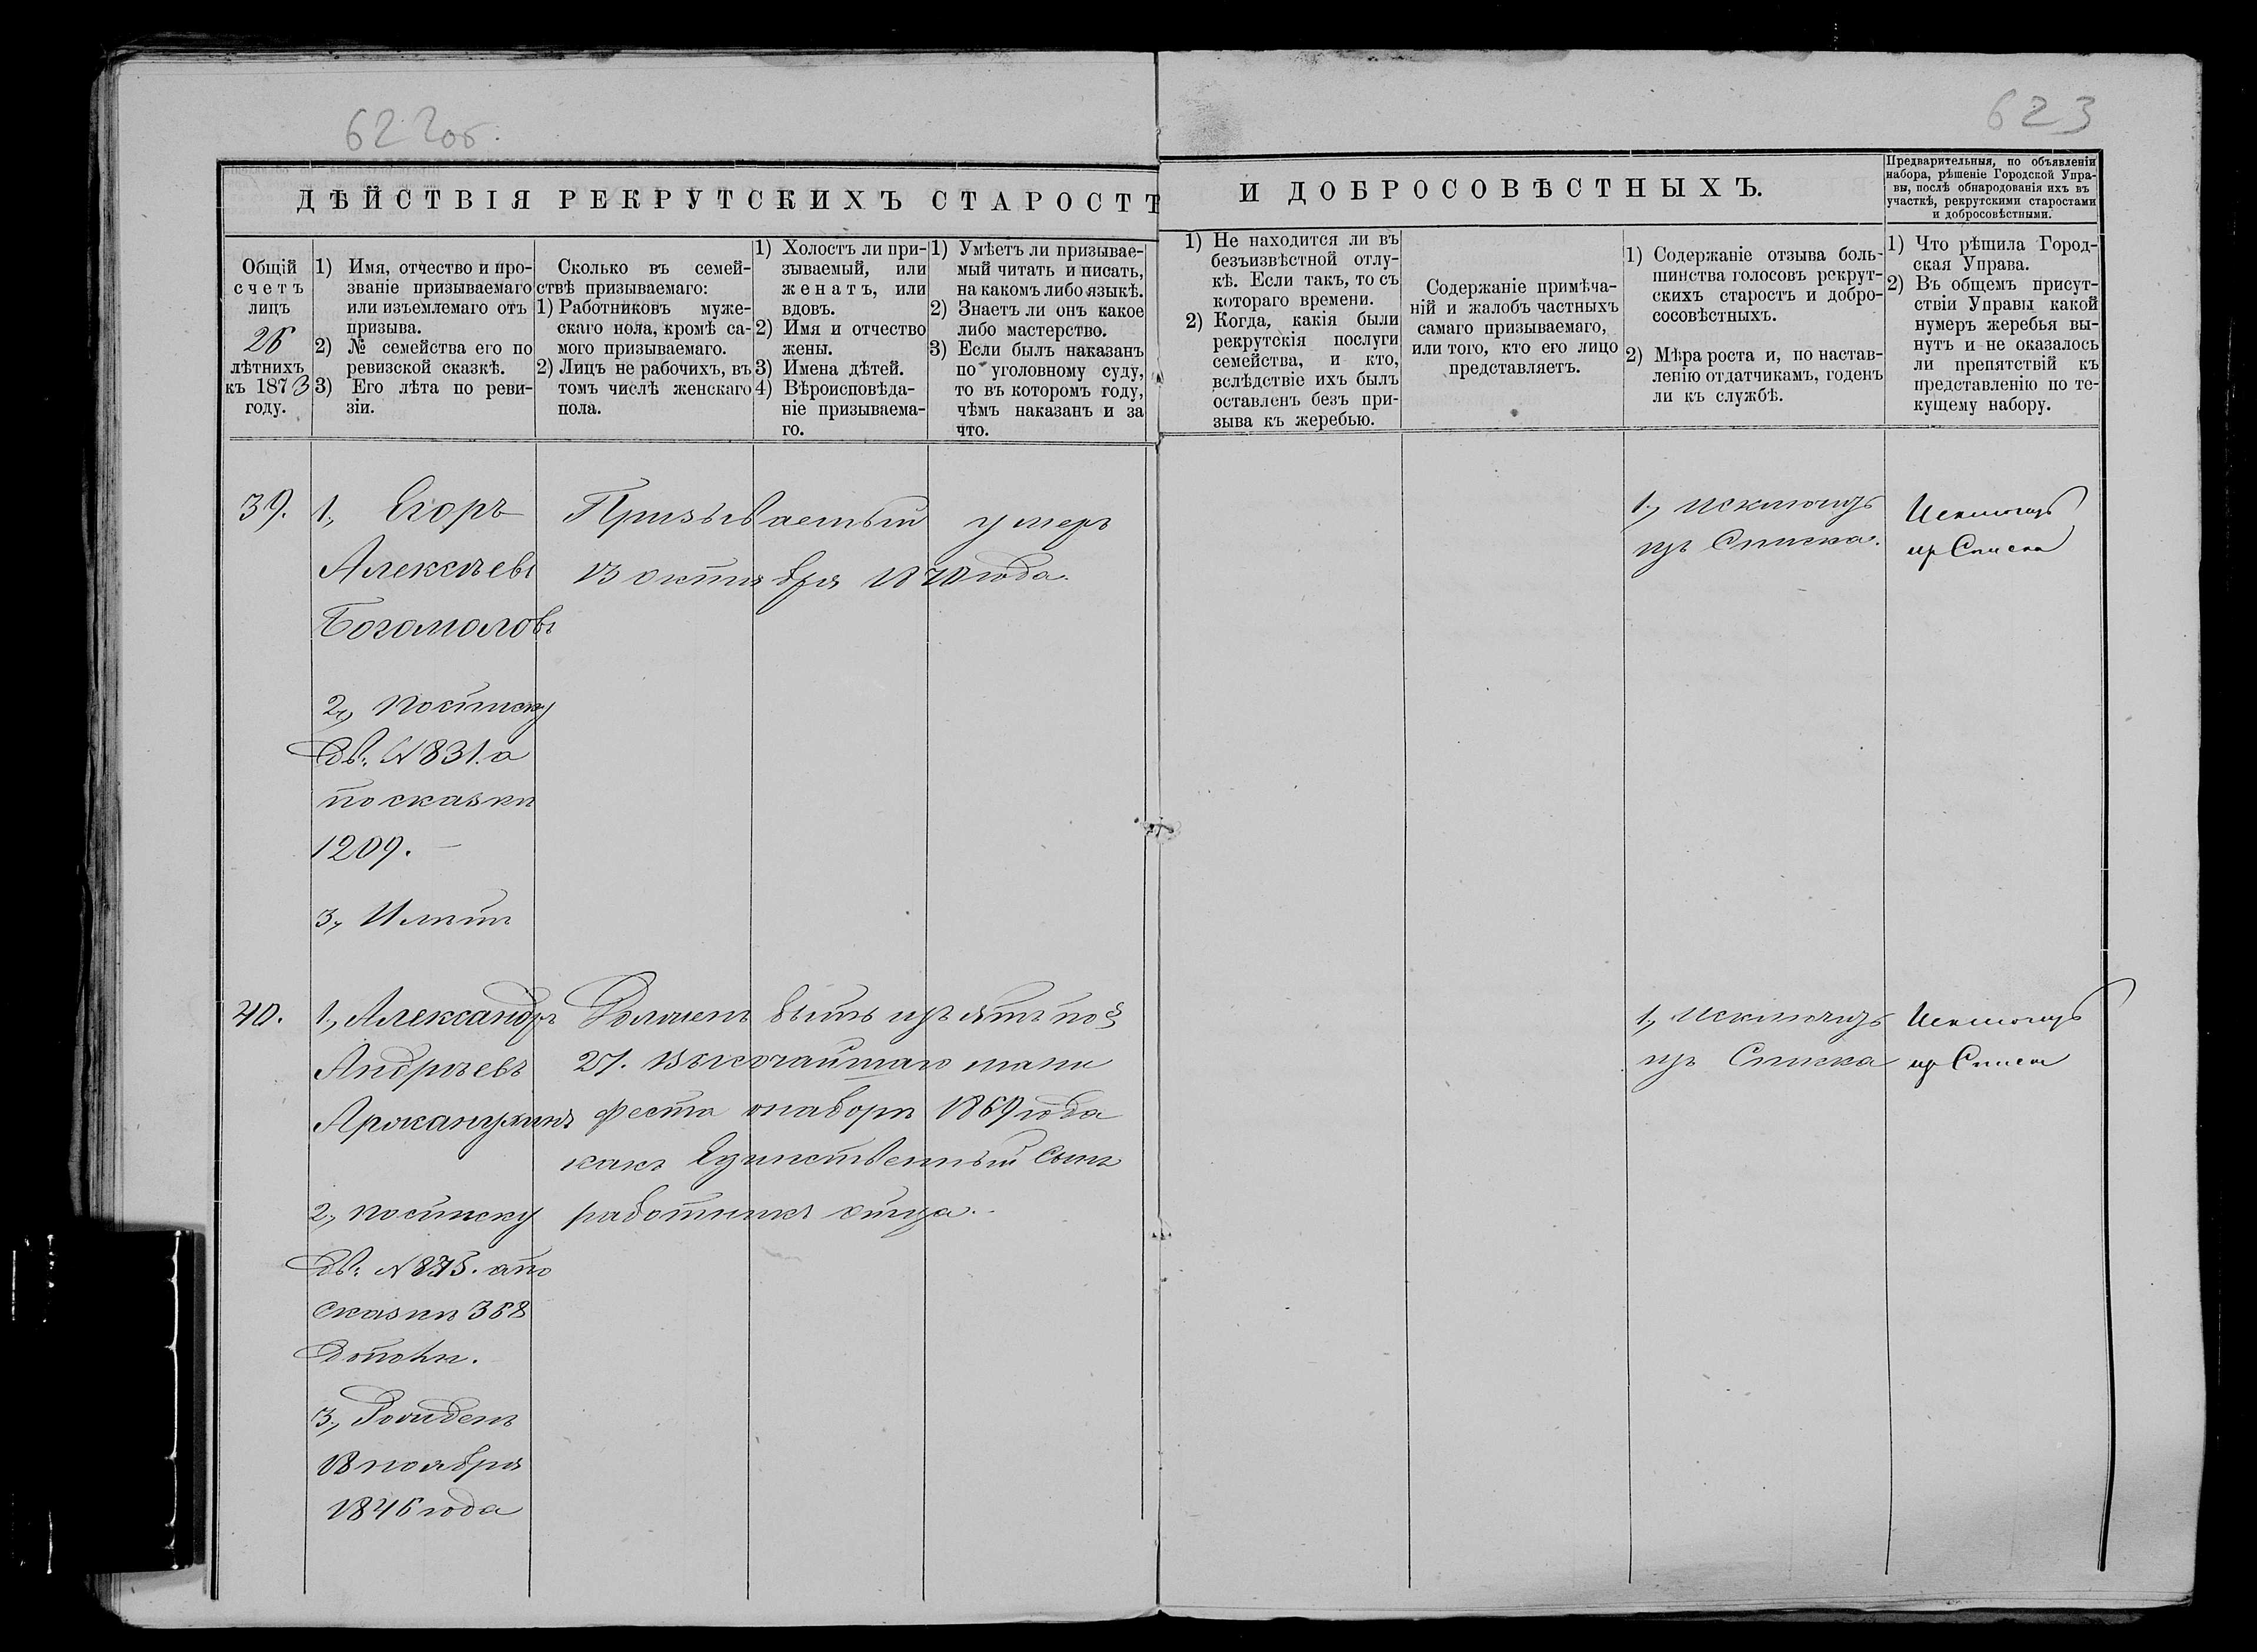 622об.
623
ДѢЙСТВІЯ РЕКРУТСКИХЪ СТАРОСТЪ
И ДОБРОСОВѢСТНЫХЪ.
Предварительныя, по объявленіи
набора, рѣшеніе Городской Упра-
вы, послѣ обнародованія ихъ въ
участкѣ, рекрутскими старостами
и добросовѣстными.
Общій
счетъ
лицъ
26
лѣтнихъ
къ 1873
году.
1) Имя, отчество и про-
званіе призываемаго
или изъемлемаго отъ
призыва.
2) № семейства его по
ревизской сказкѣ.
3) Его лѣта по реви-
зіи.
Сколько въ семей-
ствѣ призываемаго:
1) Работниковъ муже-
скаго пола, кромѣ са-
мого призываемаго.
2) Лицъ не рабочихъ, въ
томъ числѣ женскаго
пола.
1) Холостъ ли при-
зываемый, или
женатъ, или
вдовъ.
2) Имя и отчество
жены.
3) Имена дѣтей.
4) Вѣроисповѣда-
ніе призываема-
го.
1) Умѣетъ ли призывае-
мый читать и писать,
на какомъ либо языкѣ.
2) Знаетъ ли онъ какое
либо мастерство.
3) Если былъ наказанъ
по уголовному суду,
то въ которомъ году,
чѣмъ наказанъ и за
что.
1) Не находится ли въ
безъизвѣстной отлу-
кѣ. Если такъ, то съ
котораго времени.
2) Когда, какія были
рекрутскія послуги
семейства, и кто,
вслѣдствіе ихъ былъ
оставленъ безъ при-
зыва къ жеребью.
Содержаніе примѣча-
ній и жалобъ частныхъ
самаго призываемаго,
или того, кто его лицо
представляетъ.
1) Содержаніе отзыва боль-
шинства голосовъ рекрут-
скихъ старостъ и добро-
сосовѣстныхъ.
2) Мѣра роста и, по настав-
ленію отдатчикамъ, годенъ
ли къ службѣ.
1) Что рѣшила Город-
ская Управа.
2) Въ общемъ присут-
ствіи Управы какой
нумеръ жеребья вы-
нутъ и не оказалось
ли препятствій къ
представленію по те-
кущему набору.
39.
1, Егоръ
Алексѣевъ
Богомоловъ
2, по списку
дв. № 831. а
по сказкѣ
1209.
3, 11 лѣтъ
Призываемый умеръ
13 октября 1870 года.
1, Исключить
изъ Списка.
Исключить
изъ Списка
40.
1, Александръ
Андрѣевъ
2, по списку
дв. № 875. а по
сказкѣ 388
3, Рожденъ
18 ноября
1846 года
Долженъ быть изъятъ по §
27. Высочайшаго мани
феста о наборѣ 1869 года
какъ Единственный сынъ
работникъ отца.
1, Исключить
изъ Списка
Исключить
изъ Списка